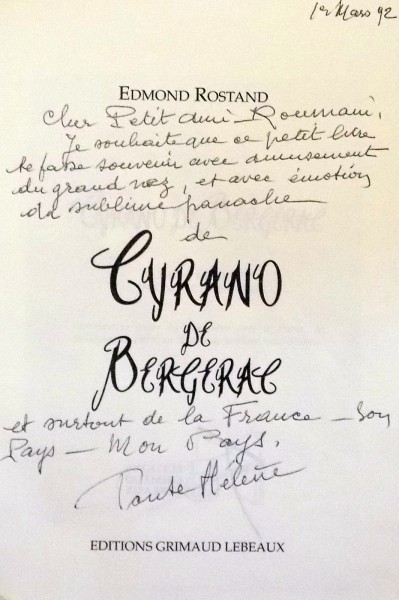 1er Mars 92
EDMOND ROSTAND
Cher Petit ami Roumain,
Je souhaite que ce petit livre
te fasse souvenir avec amusement
du grand nez, et avec émotion
du sublime panache
de
CYRANO
DE
BERGERAC
et surtout de la France – Son
Pays – Mon Pays.
Tante Hélène
EDITIONS GRIMAUD LEBEAUX